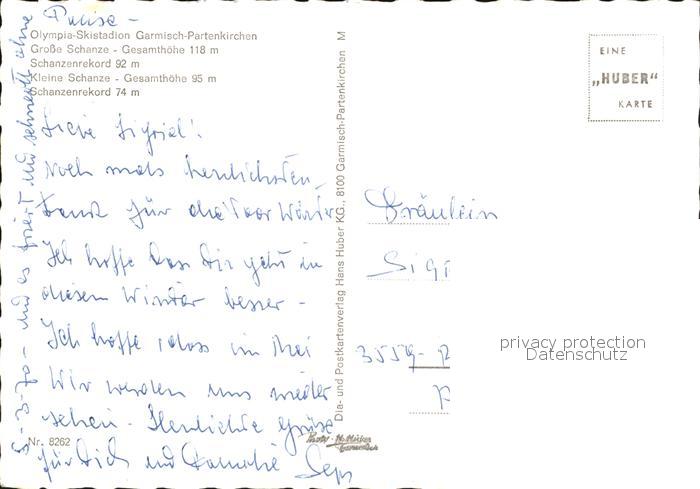 Olympia-Skistadion Garmisch-Partenkirchen
Große Schanze - Gesamthöhe 118 m
Schanzenrekord 92 m
Kleine Schanze - Gesamthöhe 95 m
Schanzenrekord 74 m
Liebe Sigrid!
Noch mals herzlichsten
Dank für die
Ich hoffe Dir geht in
diesem Winter besser -
Ich hoffe dass im Mai
Wir werden uns wieder
sehen. Herzliche Grüsse
für Dich und
Sepp
5-3-70- und es friert und schneit ohne
Pause -
Nr. 8262
Dia- und Postkartenverlag Hans Huber KG., 8100 Garmisch-Partenkirchen M
EINE
„HUBER"
KARTE
Fräulein
Sigr
3559-
privacy protection
Datenschutz